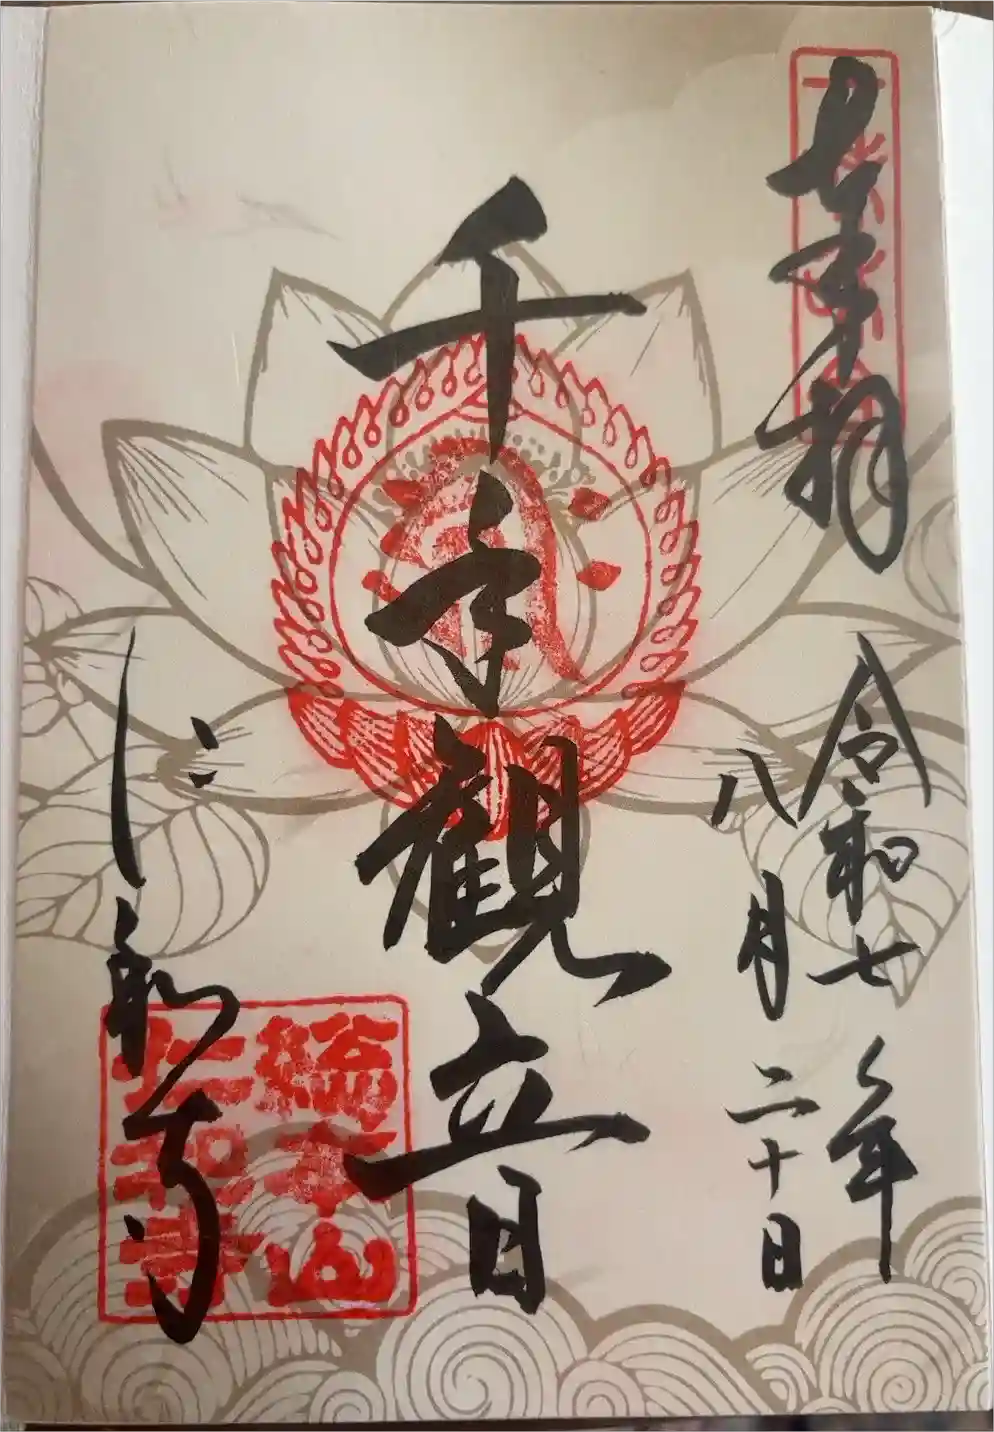 奉拝
令和七年
八月二十日
千手観音
仁和寺
総本山
仁和寺